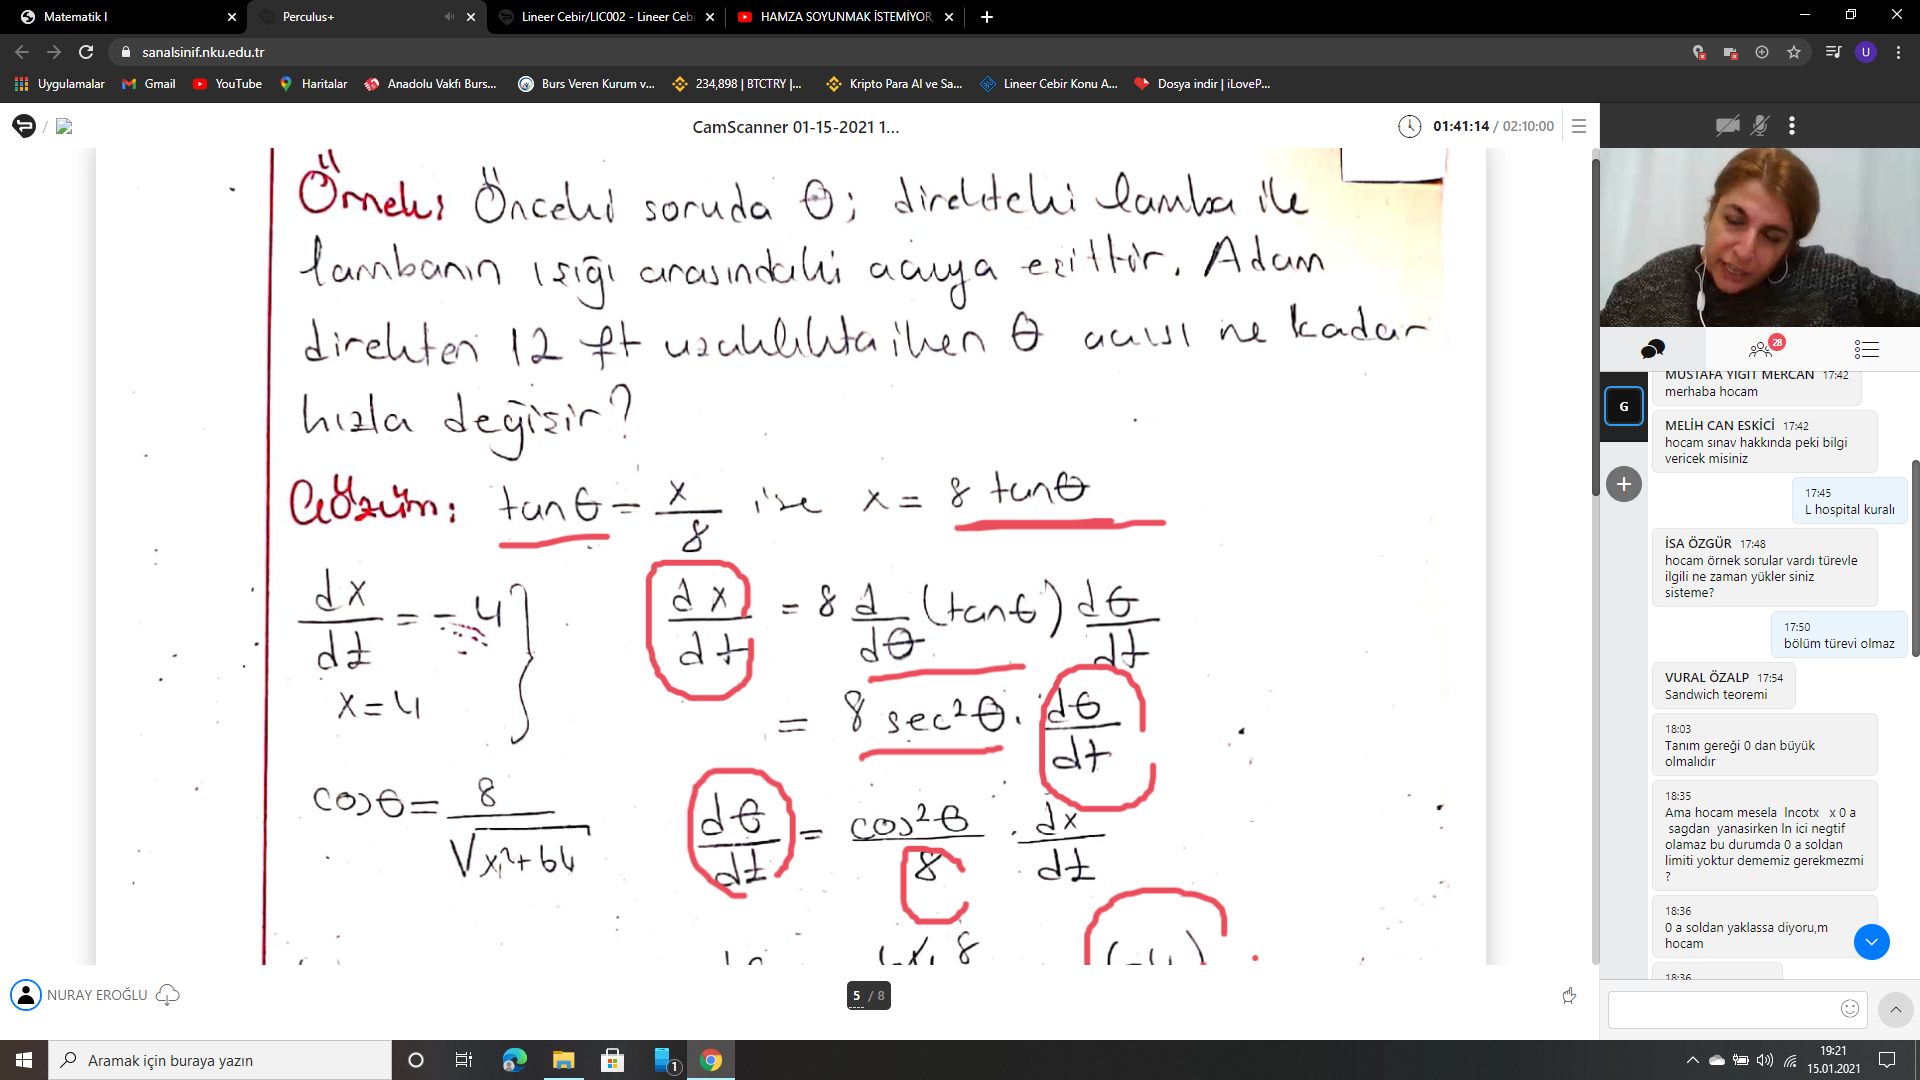 Matematik I
Perculus+
Lineer Cebir/LIC002 - Lineer Ceb
HAMZA SOYUNMAK İSTEMİYOR
sanalsinif.nku.edu.tr
U
Uygulamalar
Gmail
YouTube
Haritalar
Anadolu Vakfı Burs...
Burs Veren Kurum v...
234,898 | BTCTRY |...
Kripto Para Al ve Sa...
Lineer Cebir Konu A...
Dosya indir | iLoveP...
/
CamScanner 01-15-2021 1...
01:41:14 / 02:10:00
Örnek: Önceki soruda θ; direkteki lamba ile
lambanın ışığı arasındaki açıya eşittir. Adam
direkten 12 ft uzaklıkta iken θ açısı ne kadar
hızla değişir?
Çözüm: tanθ = x/8 ise x = 8 tanθ
dx/dt = -4
x=4
dx/dt = 8 d/dθ (tanθ) dθ/dt
= 8 sec²θ . dθ/dt
cosθ = 8/√x²+64
dθ/dt = cos²θ/8 . dx/dt
28
G
MUSTAFA YİĞİT MERCAN 17:42
merhaba hocam
MELİH CAN ESKİCİ 17:42
hocam sınav hakkında peki bilgi
vericek misiniz
17:45
L hospital kuralı
İSA ÖZGÜR 17:48
hocam örnek sorular vardı türevle
ilgili ne zaman yükler siniz
sisteme?
17:50
bölüm türevi olmaz
VURAL ÖZALP 17:54
Sandwich teoremi
18:03
Tanım gereği 0 dan büyük
olmalıdır
18:35
Ama hocam mesela lncotx x 0 a
sagdan yanasirken ln ici negtif
olamaz bu durumda 0 a soldan
limiti yoktur dememiz gerekmezmi
?
18:36
0 a soldan yaklassa diyoru,m
hocam
18:36
NURAY EROĞLU
5 / 8
Aramak için buraya yazın
1
19:21
15.01.2021